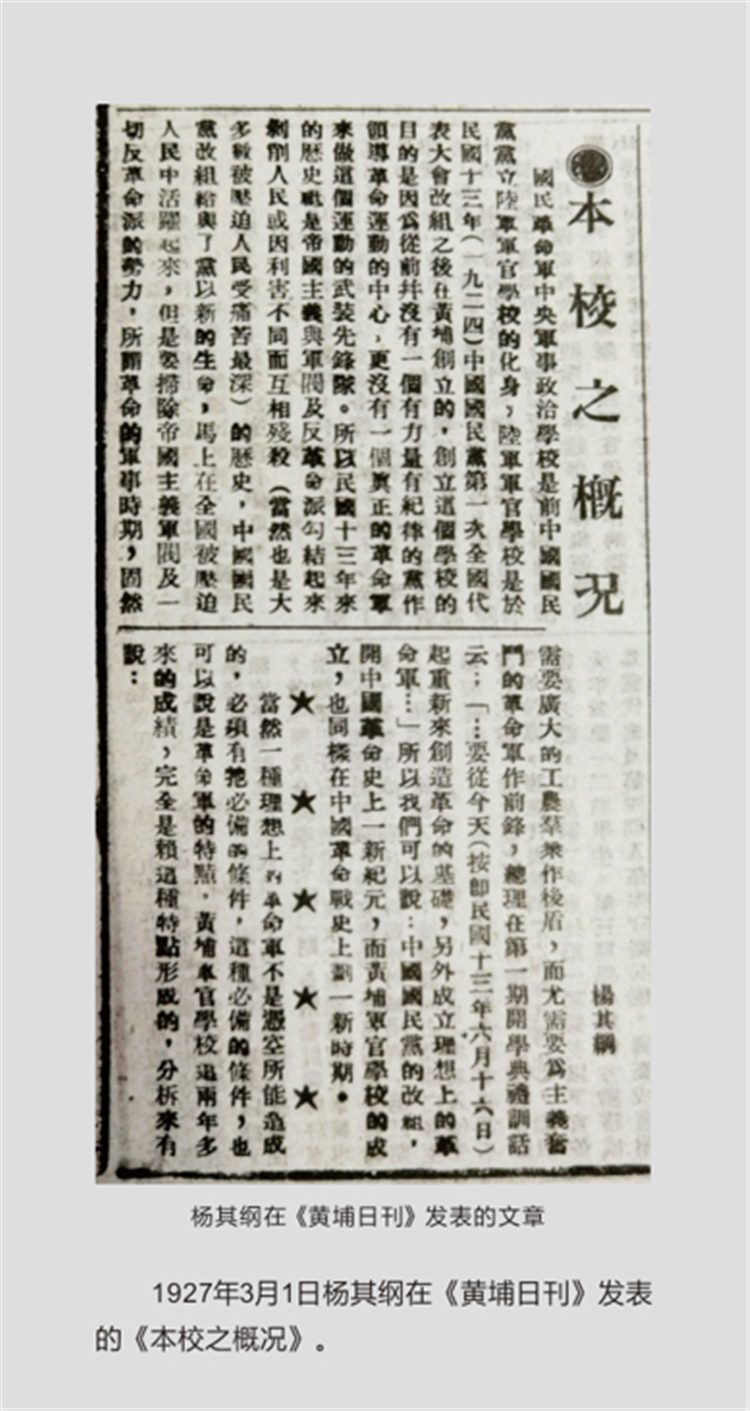 本校之概況
楊其綱
國民革命軍中央軍事政治學校是前中國國民
黨黨立陸軍軍官學校的化身，陸軍軍官學校是於
民國十三年（一九二四）中國國民黨第一次全國代
表大會改組之後在黃埔創立的，創立這個學校的
目的是因爲從前并沒有一個有力量有紀律的黨作
領導革命運動的中心，更沒有一個眞正的革命軍
來做這個運動的武裝先鋒隊。所以民國十三年來
的歷史祇是帝國主義與軍閥及反革命派勾結起來
剝削人民或因利害不同而互相殘殺（當然也是大
多數被壓迫人民受痛苦最深）的歷史，中國國民
黨改組給與了黨以新的生命，馬上在全國被壓迫
人民中活躍起來，但是要掃除帝國主義軍閥及一
切反革命派的勢力，所謂革命的軍事時期，固然
需要廣大的工農羣衆作後盾，而尤需要爲主義奮
鬥的革命軍作前鋒，總理在第一期開學典禮訓話
云：「…要從今天（按卽民國十三年六月十六日）
起重新來創造革命的基礎，另外成立理想上的革
命軍…」所以我們可以說：中國國民黨的改組，
開中國革命史上一新紀元，而黃埔軍官學校的成
立，也同樣在中國革命戰史上劃一新時期。
★ ★ ★ ★ ★
當然一種理想上的革命軍不是憑空所能造成
的，必須有牠必備的條件，這種必備的條件，也
可以說是革命軍的特點。黃埔軍官學校這兩年多
來的成績，完全是賴這種特點形成的，分析來有
說：
杨其纲在《黄埔日刊》发表的文章
1927年3月1日杨其纲在《黄埔日刊》发表
的《本校之概况》。